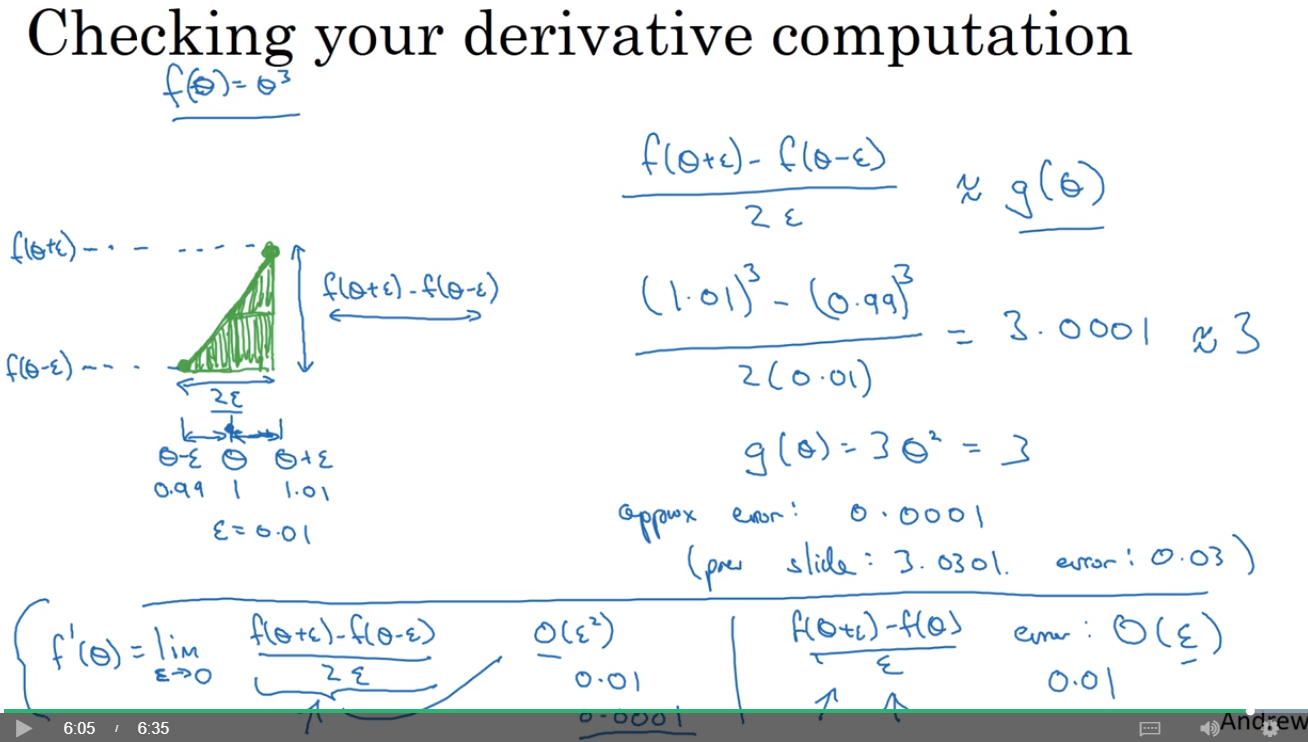 Checking your derivative computation
f(θ) = θ³
f(θ+ε) - f(θ-ε)
2ε
≈ g(θ)
f(θ+ε)
f(θ+ε) - f(θ-ε)
f(θ-ε)
2ε
θ-ε θ θ+ε
0.99 1 1.01
ε = 0.01
(1.01)³ - (0.99)³
2(0.01)
= 3.0001 ≈ 3
g(θ) = 3θ² = 3
approx error: 0.0001
(prev slide: 3.0301. error: 0.03)
f'(θ) = lim ε→0
f(θ+ε) - f(θ-ε)
2ε
O(ε²)
0.01
0.0001
f(θ+ε) - f(θ)
ε
error: O(ε)
0.01
6:05 / 6:35
Andrew